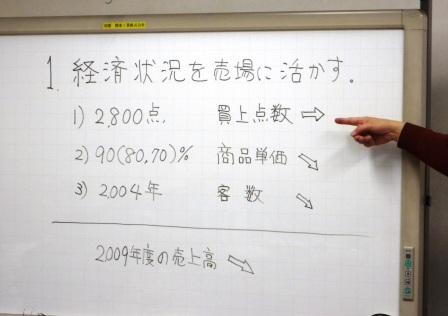 1. 経済状況を売場に活かす。
1) 2,800点 買上点数 ⇨
2) 90(80,70)% 商品単価
3) 2004年 客数
2009年度の売上高